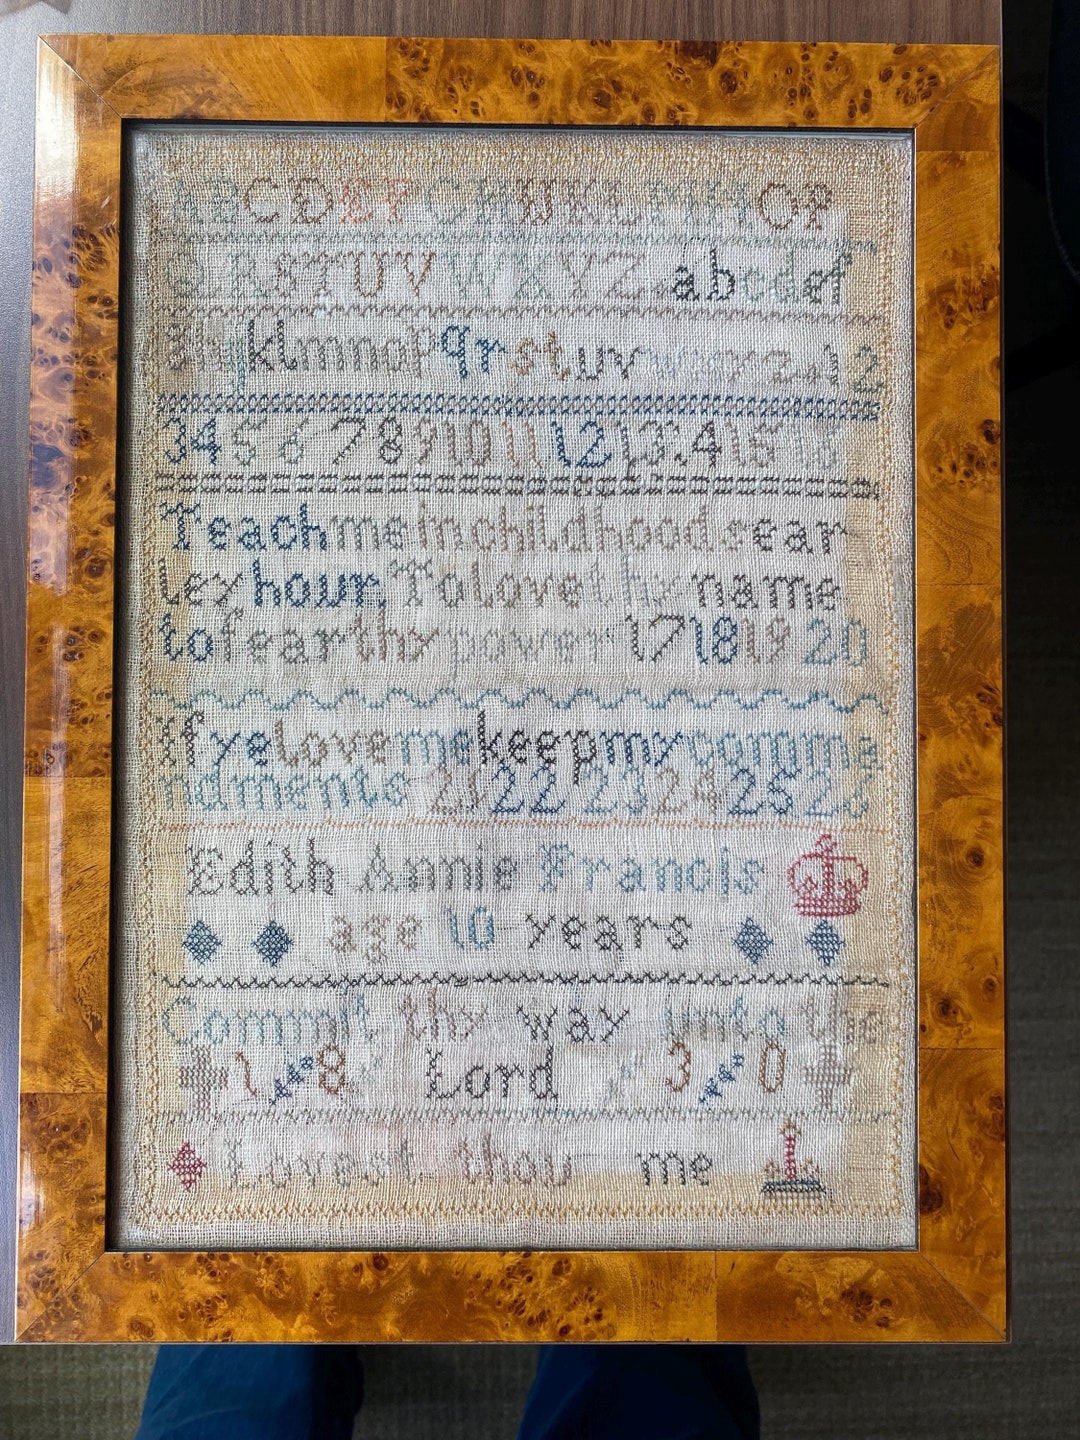 ABCDEFGHIJKLMNOP
QRSTUVWXYZ.abcdef
ghijklmnopqrstuvwxyz.12
345678910111213.141516
Teach me in childhoods ear
ley hour, To love thy name
to fear thy power 17181920
If ye love me keep my comma
ndments 212223242526
Edith Annie Francis
age 10 years
Commit thy way unto the
1 8 Lord 3 0
Lovest thou me